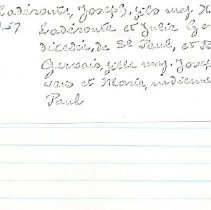 Ladéroute, Joseph, fils maj. H
57 Ladéroute et Julie Ga
décédée, de St Paul, et R
Gervais, fille maj. Josep
vais et Marie, indienne
Paul